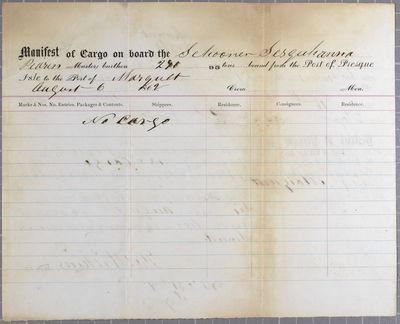 Manifest of Cargo on board the Schooner Sesquehanna
Pearson Masters burthen 290 tons bound from the Port of Presque
Isle to the Port of Marquett
August 6 Crew Men.
Marks & Nos. No. Entries. Packages & Contents. Shippers. Residence. Consignees. Residence.
No Cargo